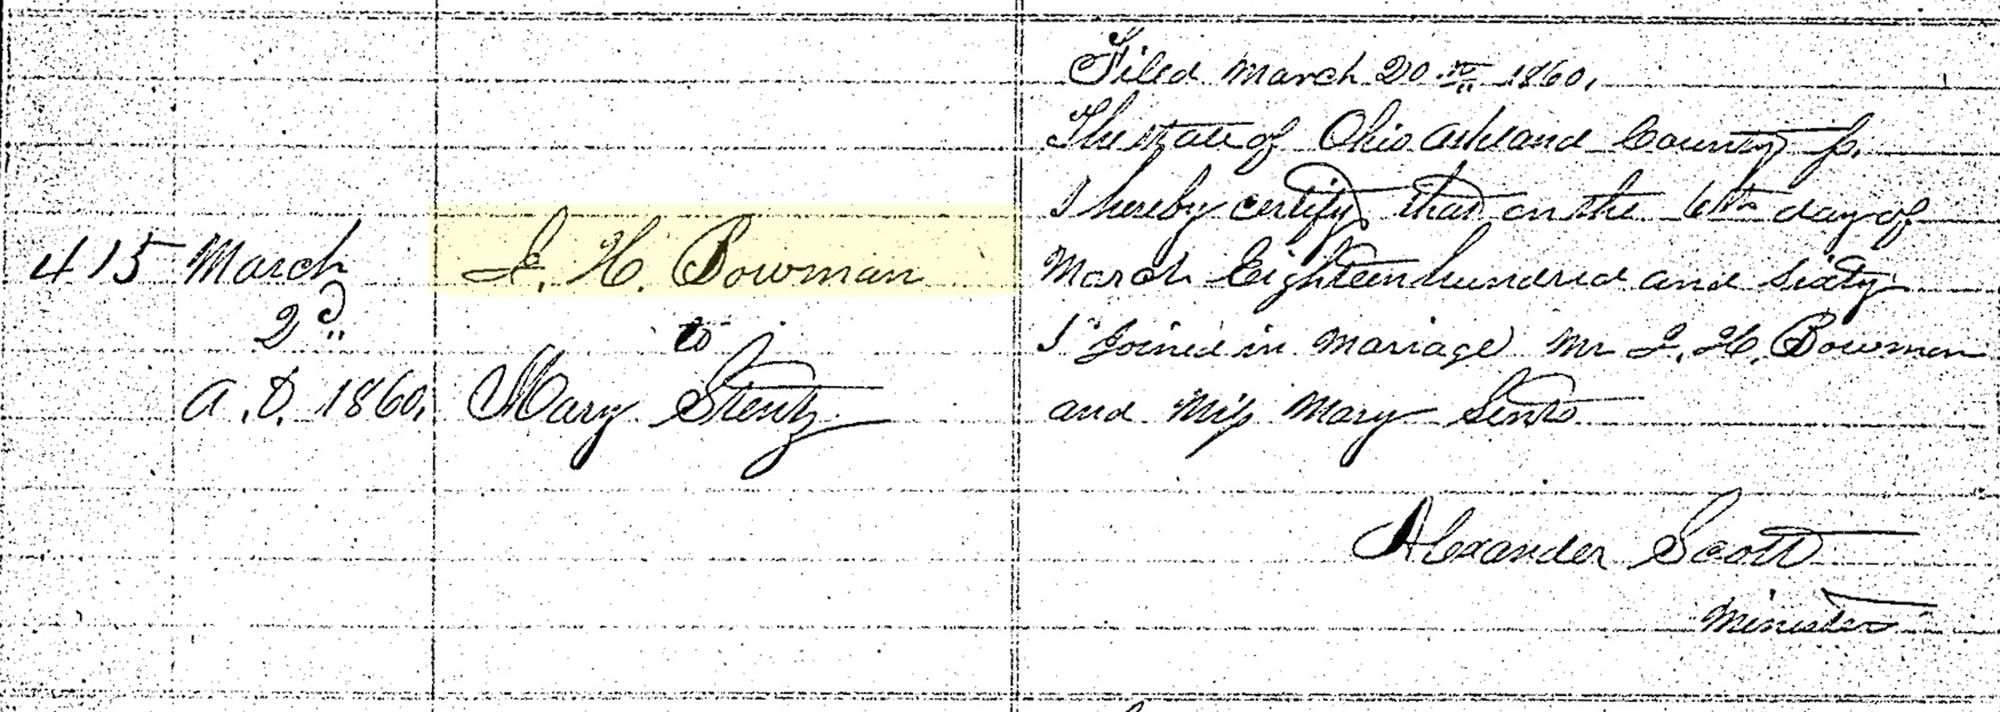 415 March 2d A.D. 1860.
I. H. Bowman
to
Mary Stentz
Filed March 20th 1860.
The State of Ohio Ashland County ss.
I hereby certify that on the 6th day of
March Eighteen hundred and Sixty
I Joined in Mariage Mr I. H. Bowman
and Miss Mary
Alexander Scott
Minister